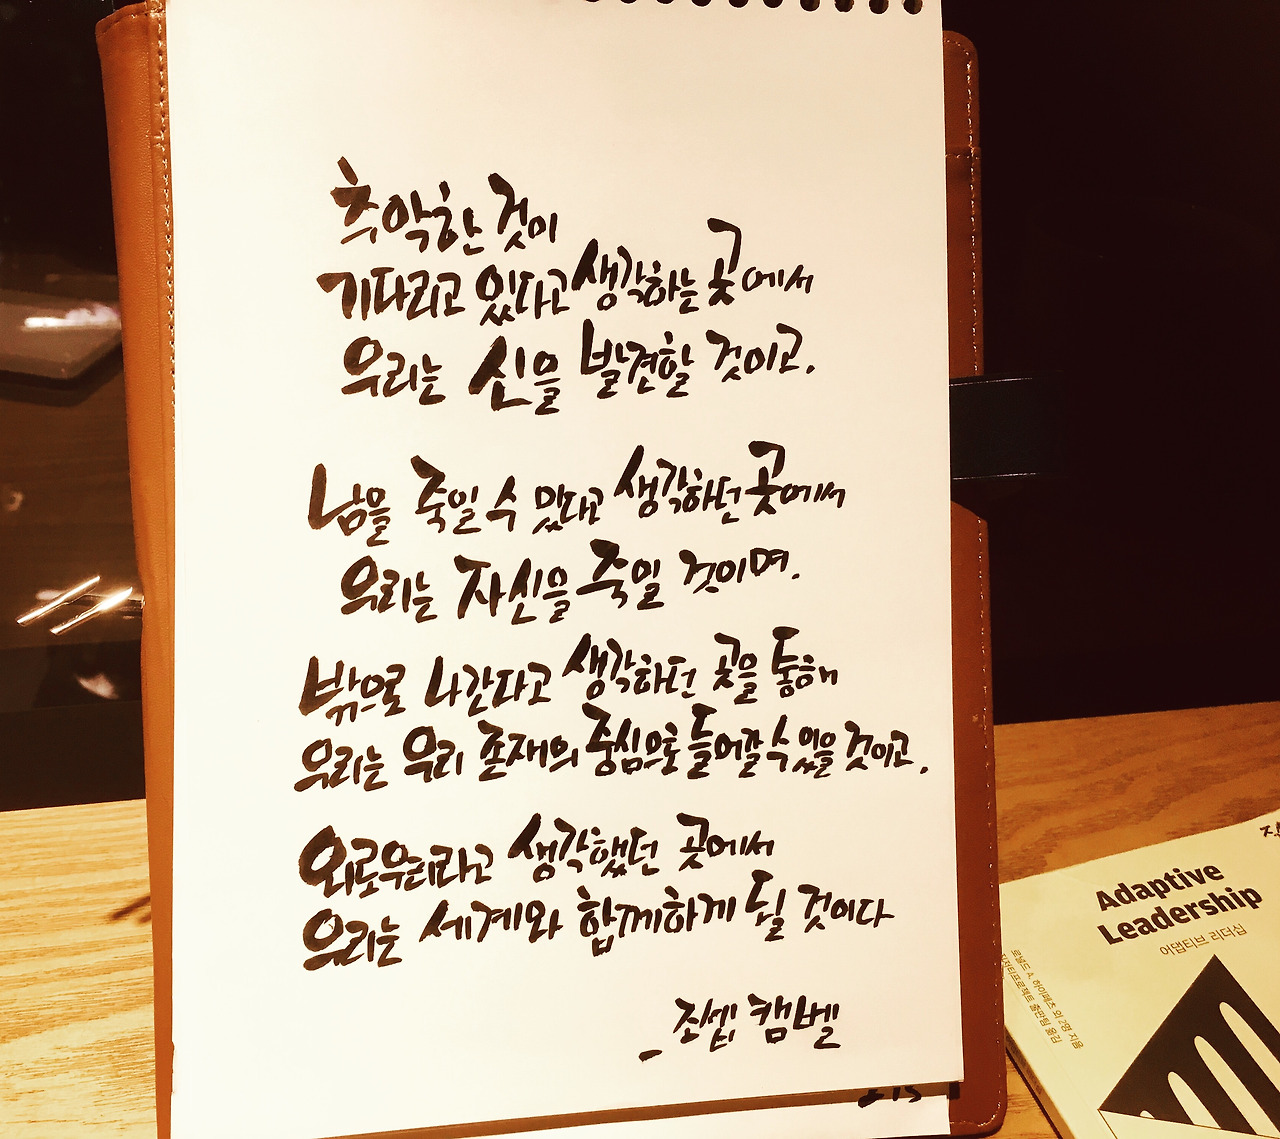 추악한 것이
기다리고 있다고 생각하는 곳에서
우리는 신을 발견할 것이고.
남을 죽일 수 있다고 생각하던 곳에서
우리는 자신을 죽일 것이며.
밖으로 나간다고 생각하던 곳을 통해
우리는 우리 존재의 중심으로 들어갈 수 있을 것이고.
외로우리라고 생각했던 곳에서
우리는 세계와 함께하게 될 것이다
_조셉 캠벨
Adaptive
Leadership
어댑티브 리더십
로널드 A. 하이페츠 외 2명 지음
출판팀 옮김